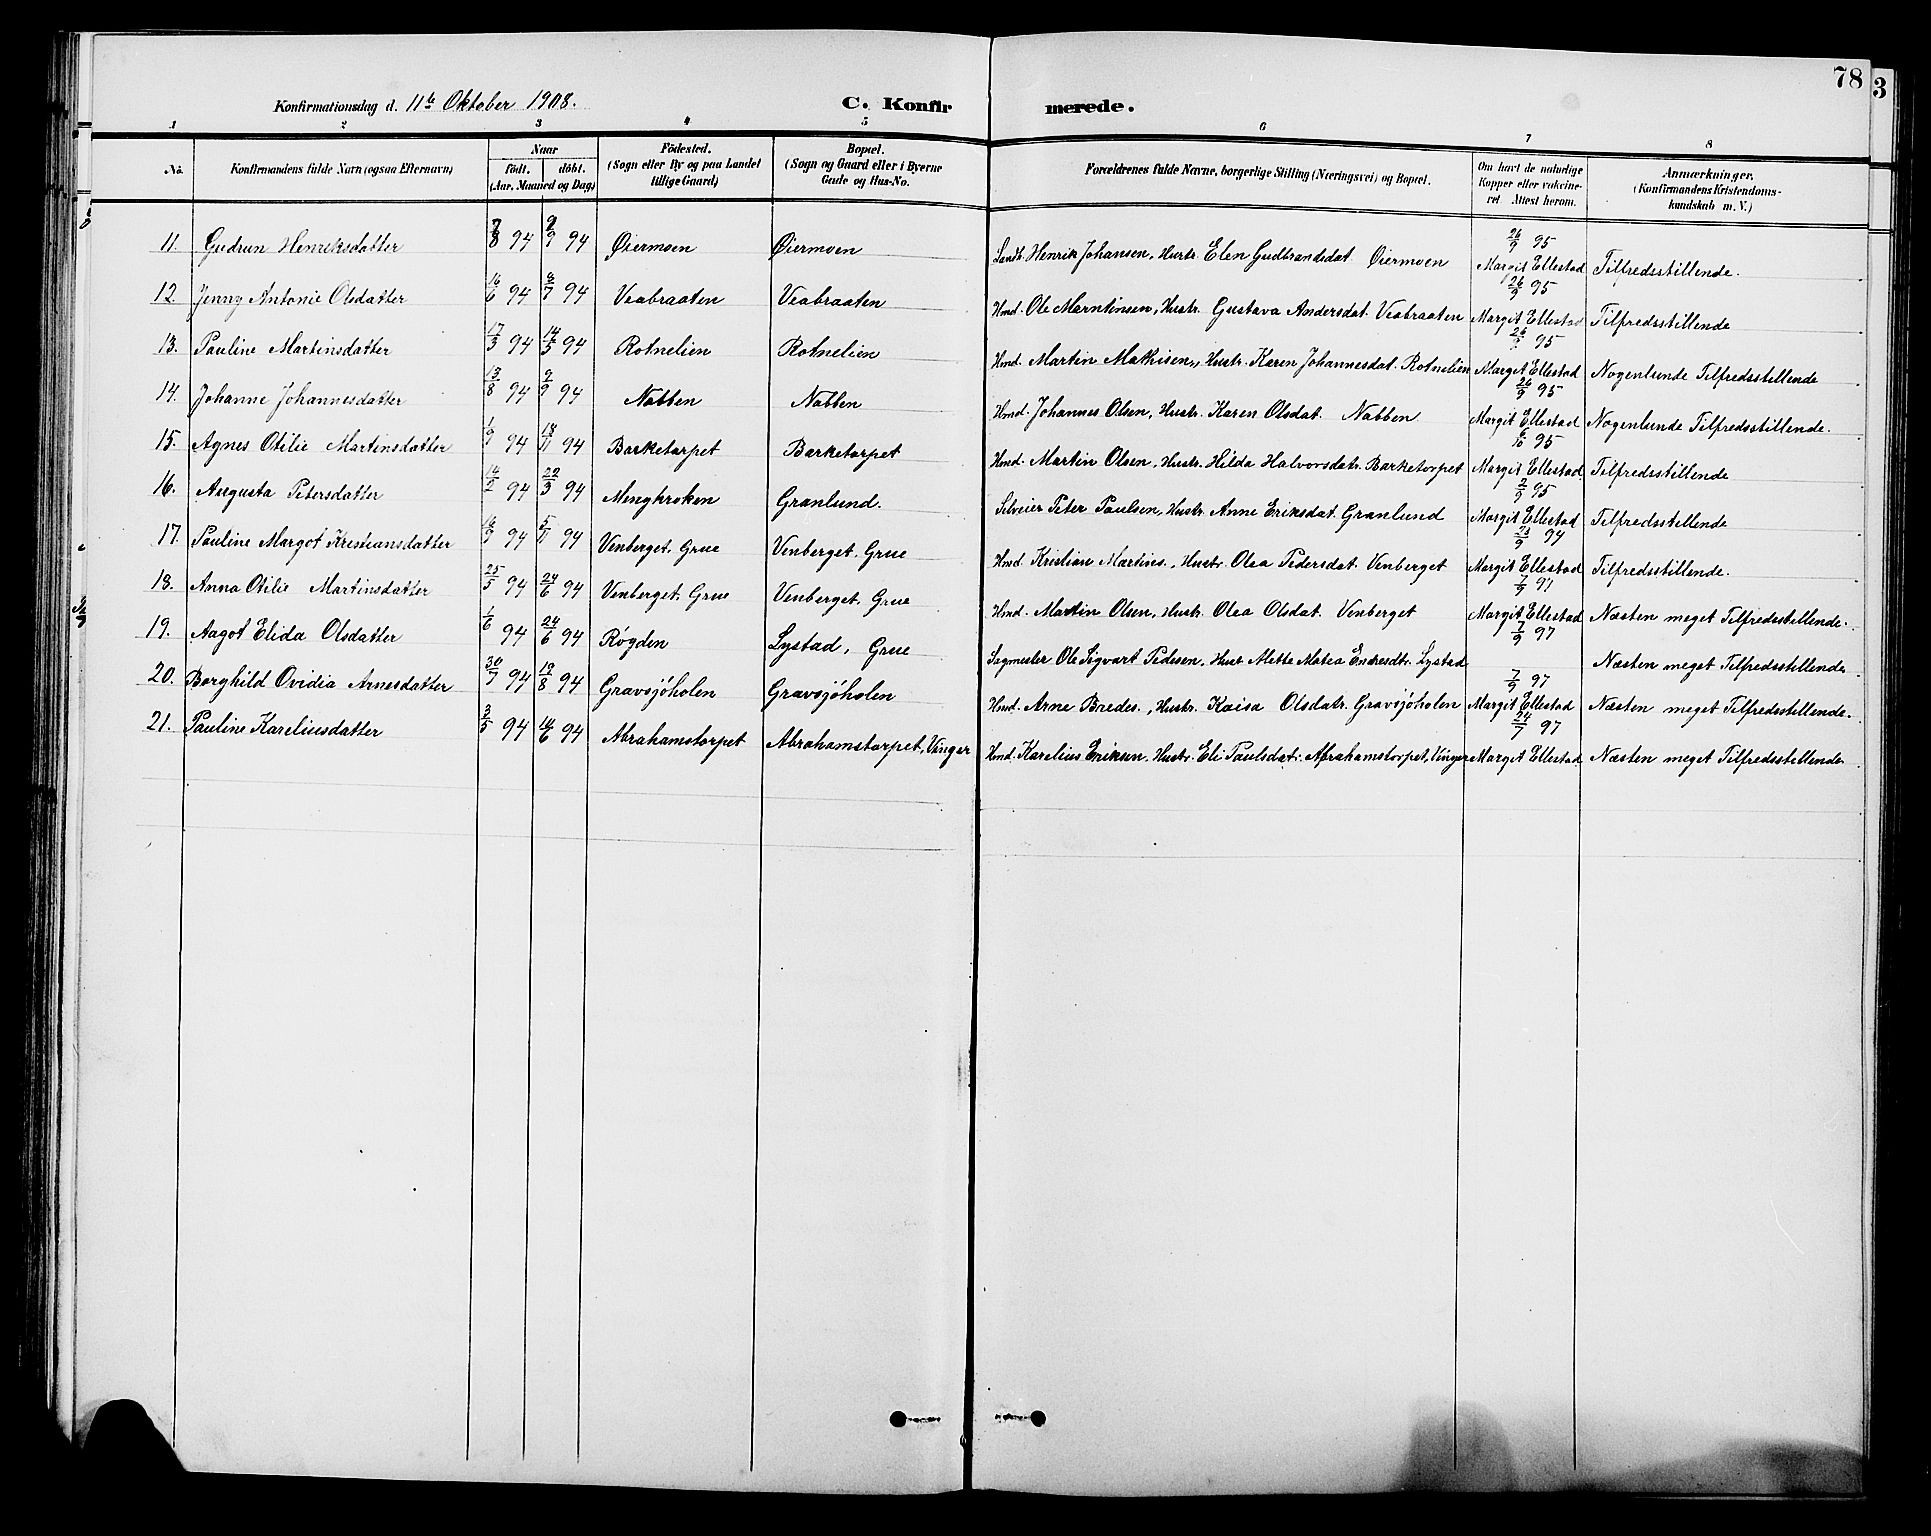 78
3
Konfirmationsdag d. 11te Oktober 1908.
C. Konfirmerede.
1 2 3 4 5 6 7 8
No. | Konfirmandens fulde Navn (ogsaa Efternavn) | Naar født. døbt. (Aar, Maaned og Dag) | Födested. (Sogn eller By og paa Landet tillige Gaard) | Bopæl. (Sogn og Gaard eller i Byerne Gade og Hus-No. | Forældrenes fulde Navne, borgerlige Stilling (Næringsvei) og Bopæl. | Om havt de naturlige Kopper eller vakcineret Attest herom. | Anmærkninger. (Konfirmandens Kristendomskundskab m. V.)
11. Gudrun Henriksdatter 7/8 94 9/9 94 Øiermoen Øiermoen Landh. Henrik Johansen, Hustr. Elen Gudbrandsdat. Øiermoen 26/9 95 Margit Ellestad Tilfredsstillende.
12. Jenny Antonie Olsdatter 16/6 94 8/7 94 Veabraaten Veabraaten Hmd. Ole Marntinsen, Hustr. Gustava Andersdat. Veabraaten 26/9 95 Margit Ellestad Tilfredsstillende
13. Pauline Martinsdatter 17/3 94 14/5 94 Rotnelien Rotnelien Hmd. Martin Mathisen, Hustr. Karen Johannesdat. Rotnelien 26/9 95 Margit Ellestad Nogenlunde Tilfredsstillende
14. Johanne Johannesdatter 13/8 94 9/9 94 Nabben Nabben Hmd. Johannes Olsen, Hustr. Karen Olsdat. Nabben 26/9 95 Margit Ellestad Nogenlunde Tilfredsstillende.
15. Agnes Otilie Martinsdatter 1/9 94 18/11 94 Barketorpet Barketorpet Hmd. Martin Olsen, Hustr. Hilda Halvorsdatr. Barketorpet 95 Margit Ellestad Tilfredsstillende
16. Augusta Petersdatter 14/2 94 22/3 94 Mengkroken Granlund. Selveier Peter Paulsen, Hustr. Anne Eriksdat. Granlund 2/9 95 Margit Ellestad Tilfredsstillende
17. Pauline Margot Kristiansdatter 16/9 94 5/11 94 Venberget, Grue Venberget, Grue Hmd. Kristian Martins., Hustr. Olea Pedersdat. Venberget 23/9 94 Margit Ellestad Tilfredsstillende.
18. Anna Otilie Martinsdatter 25/5 94 24/6 94 Venberget, Grue Venberget, Grue Hmd. Martin Olsen, Hustr. Olea Olsdat. Venberget 7/9 97 Margit Ellestad Næsten meget Tilfredsstillende.
19. Aagot Elida Olsdatter 1/6 94 24/6 94 Røgden Lystad, Grue Sagmester Ole Sigvart Pedesen, Hustr. Mette Matea Endresdtr. Lystad 7/9 97 Næsten meget Tilfredsstillende
20. Borghild Ovidia Arnesdatter 30/7 94 19/8 94 Gravsjöholen Gravsjöholen Hmd. Arne Bredes., Hustr. Kaisa Olsdatr. Gravsjöholen 7/9 97 Margit Ellestad Næsten meget Tilfredsstillende.
21. Pauline Kareliusdatter 3/5 94 14/6 94 Abrahamstorpet Abrahamstorpet, Vinger Hmd. Karelius Eriksen, Hustr. Eli Paulsdat. Abrahamstorpet, Vinger 24/7 97 Margit Ellestad Næsten meget Tilfredsstillende